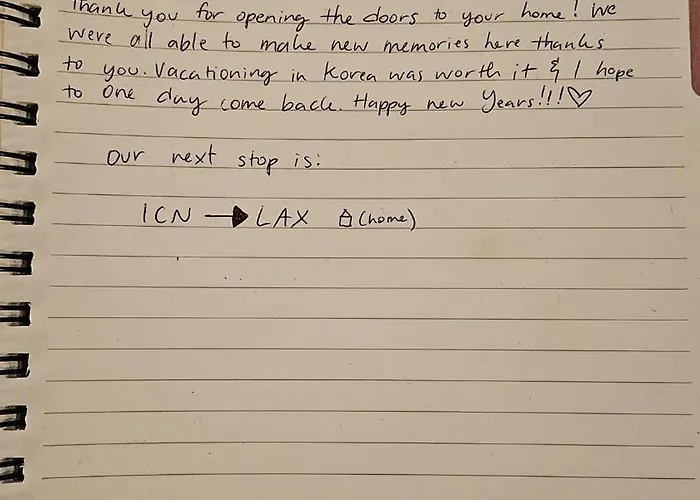 Thank you for opening the doors to your home! We
were all able to make new memories here thanks
to you. Vacationing in Korea was worth it & I hope
to one day come back. Happy new Years!!!♡
Our next stop is:
ICN → LAX (home)